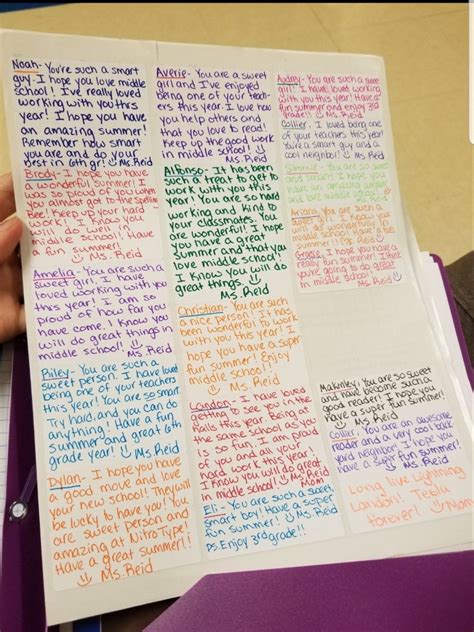 Noah- You're such a smart
guy. I hope you love middle
school! I've really loved
working with you this
year! I hope you have
an amazing summer!
Remember how smart
you are and do your
best in 6th gr! Ms. Reid
Brody- I hope you have
a wonderful summer! I
was so proud of you when
you almost got to the Spelling
Bee! Keep up your hard
work. I know you
will do well in
middle school. Have
a fun summer!
Ms. Reid
Amelia- You are such a
sweet girl. I have
loved working with you
this year! I am so
proud of how far you
have come. I know you
will do great things in
middle school! Ms. Reid
Riley- You are such a
sweet person. I have loved
being one of your teachers
this year! You are so smart.
Try hard and you can do
anything! Have a fun
summer and great 6th
grade year! Ms. Reid
Dylan- I hope you have
a good move and love
your new school! They will
be lucky to have you! You
are sweet person and
amazing at Nitro Type!
Have a great summer!!
Ms. Reid
Averie- You are a sweet
girl and I've enjoyed
being one of your teach-
ers this year. I love how
you help others and
that you love to read!
Keep up the good work
in middle school!
Ms. Reid
Alfonso- It has been
such a treat to get to
work with you this
year! You are so hard
working and kind to
your classmates. You
are wonderful! I hope
you have a great
summer and that you
love middle school!
I know you will do
great things.
Ms. Reid
Christian- You are such
a nice person! It has
been wonderful to work
with you this year! I
hope you have a super
fun summer! Enjoy
middle school!!
Ms. Reid
Landon- I have loved
getting to see you in the
halls this year. Being at
the same school as you
is so fun. I am proud
of you and all your
hard work this year!
I know you will do great
in middle school!
Mom
Eli- You are such a sweet,
smart boy! Have a super
fun summer! Ms. Reid
P.S. Enjoy 3rd grade!!
Audrey- You are such a sweet
girl! I have loved working
with you this year! Have a
fun summer and enjoy 3rd
grade! Ms. Reid
Collier- I loved being one
of your teachers this year!
You're a smart guy and a
cool neighbor! Ms. Reid
You are so sweet
and smart! I hope you
have an amazing summer
Ms. Reid
I know you
will do
in middle school! Have a
summer!! Ms. Reid
Gracie- I hope you have a
really fun summer! I think
you're going to do great
in middle school!
Ms. Reid
Makinley- You are so sweet
and have become such a
good reader! I hope you
have a super fun summer!
Ms. Reid
Collier- You are an awesome
reader and a very cool back
yard neighbor! I hope you
have a super fun summer!
Ms. Reid
Long live Lightning
Landon! Tesla
forever!
Mom